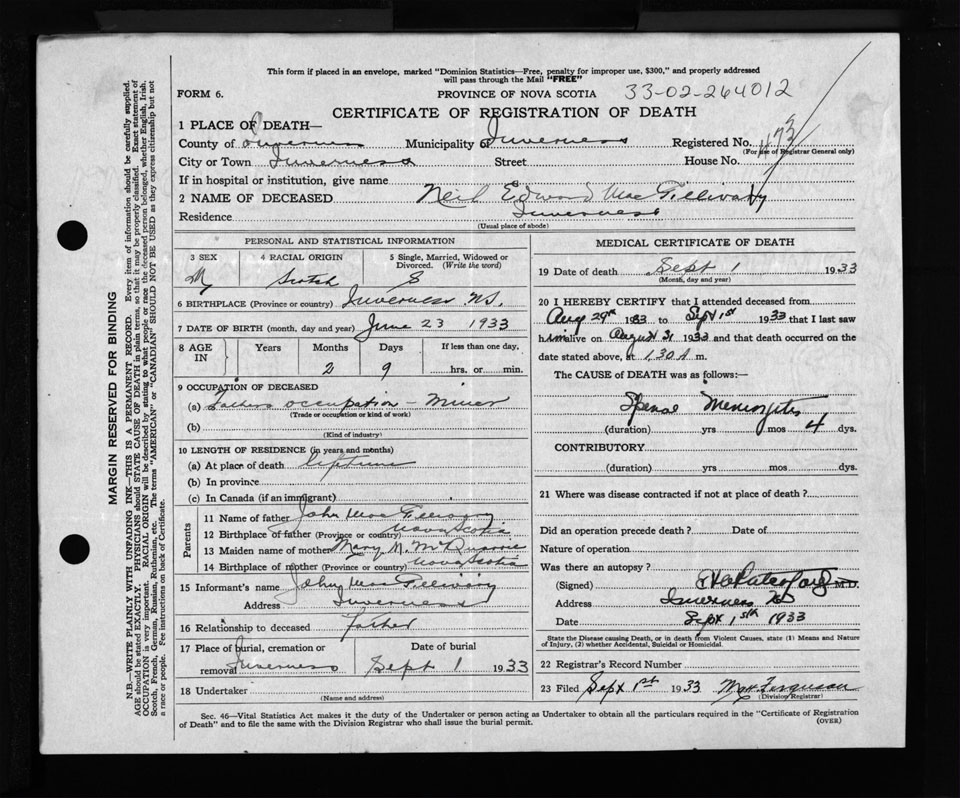 This form if placed in an envelope, marked "Dominion Statistics—Free, penalty for improper use, $300," and properly addressed
will pass through the Mail "FREE"
FORM 6.
PROVINCE OF NOVA SCOTIA
33-02-264012
CERTIFICATE OF REGISTRATION OF DEATH
1 PLACE OF DEATH—
County of Inverness Municipality of Inverness Registered No. 473
(For use of Registrar General only)
City or Town Inverness Street House No.
If in hospital or institution, give name
2 NAME OF DECEASED Neil Edward MacGillivary
Residence Inverness
(Usual place of abode)
PERSONAL AND STATISTICAL INFORMATION
3 SEX 4 RACIAL ORIGIN 5 Single, Married, Widowed or
Divorced. (Write the word)
M Scotch S
6 BIRTHPLACE (Province or country) Inverness N.S.
7 DATE OF BIRTH (month, day and year) June 23 1933
8 AGE IN Years Months Days If less than one day,
2 9 hrs. or min.
9 OCCUPATION OF DECEASED
(a) Fathers occupation - Miner
(Trade or occupation or kind of work)
(b)
(Kind of industry)
10 LENGTH OF RESIDENCE (in years and months)
(a) At place of death lifetime
(b) In province
(c) In Canada (if an immigrant)
Parents
11 Name of father John MacGillivary
12 Birthplace of father (Province or country) Nova Scotia
13 Maiden name of mother Mary M. McQuarrie
14 Birthplace of mother (Province or country) Nova Scotia
15 Informant's name John MacGillivary
Address Inverness
16 Relationship to deceased Father
17 Place of burial, cremation or Date of burial
removal Inverness Sept 1 1933
18 Undertaker
(Name and address)
MEDICAL CERTIFICATE OF DEATH
19 Date of death Sept 1 1933
(Month, day and year)
20 I HEREBY CERTIFY that I attended deceased from
Aug 29th 1933 to Sept 1st 1933 that I last saw
him alive on August 31 1933 and that death occurred on the
date stated above, at 1.30 A m.
The CAUSE of DEATH was as follows:—
Spinal Meningitis
(duration) yrs mos 4 dys.
CONTRIBUTORY
(duration) yrs mos dys.
21 Where was disease contracted if not at place of death?
Did an operation precede death? Date of
Nature of operation
Was there an autopsy?
(Signed) M.D.
Address Inverness NS
Date Sept 1st 1933
State the Disease causing Death, or in death from Violent Causes, state (1) Means and Nature
of Injury, (2) whether Accidental, Suicidal or Homicidal.
22 Registrar's Record Number
23 Filed Sept 1st 1933 Ferguson
(Division Registrar)
Sec. 46—Vital Statistics Act makes it the duty of the Undertaker or person acting as Undertaker to obtain all the particulars required in the "Certificate of Registration
of Death" and to file the same with the Division Registrar who shall issue the burial permit. (OVER)
MARGIN RESERVED FOR BINDING
N.B.—WRITE PLAINLY WITH UNFADING INK—THIS IS A PERMANENT RECORD. Every item of information should be carefully supplied.
AGE should be stated EXACTLY. PHYSICIANS should STATE CAUSE OF DEATH in plain terms, so that it may be properly classified. Exact statement of
OCCUPATION is very important. RACIAL ORIGIN will be described by stating to what people or race the deceased person belonged, whether English, Irish,
Scotch, French, German, Russian, Ruthenian, etc. The terms "AMERICAN" or "CANADIAN" SHOULD NOT BE USED as they express citizenship but not
a race or people. See instructions on back of Certificate.